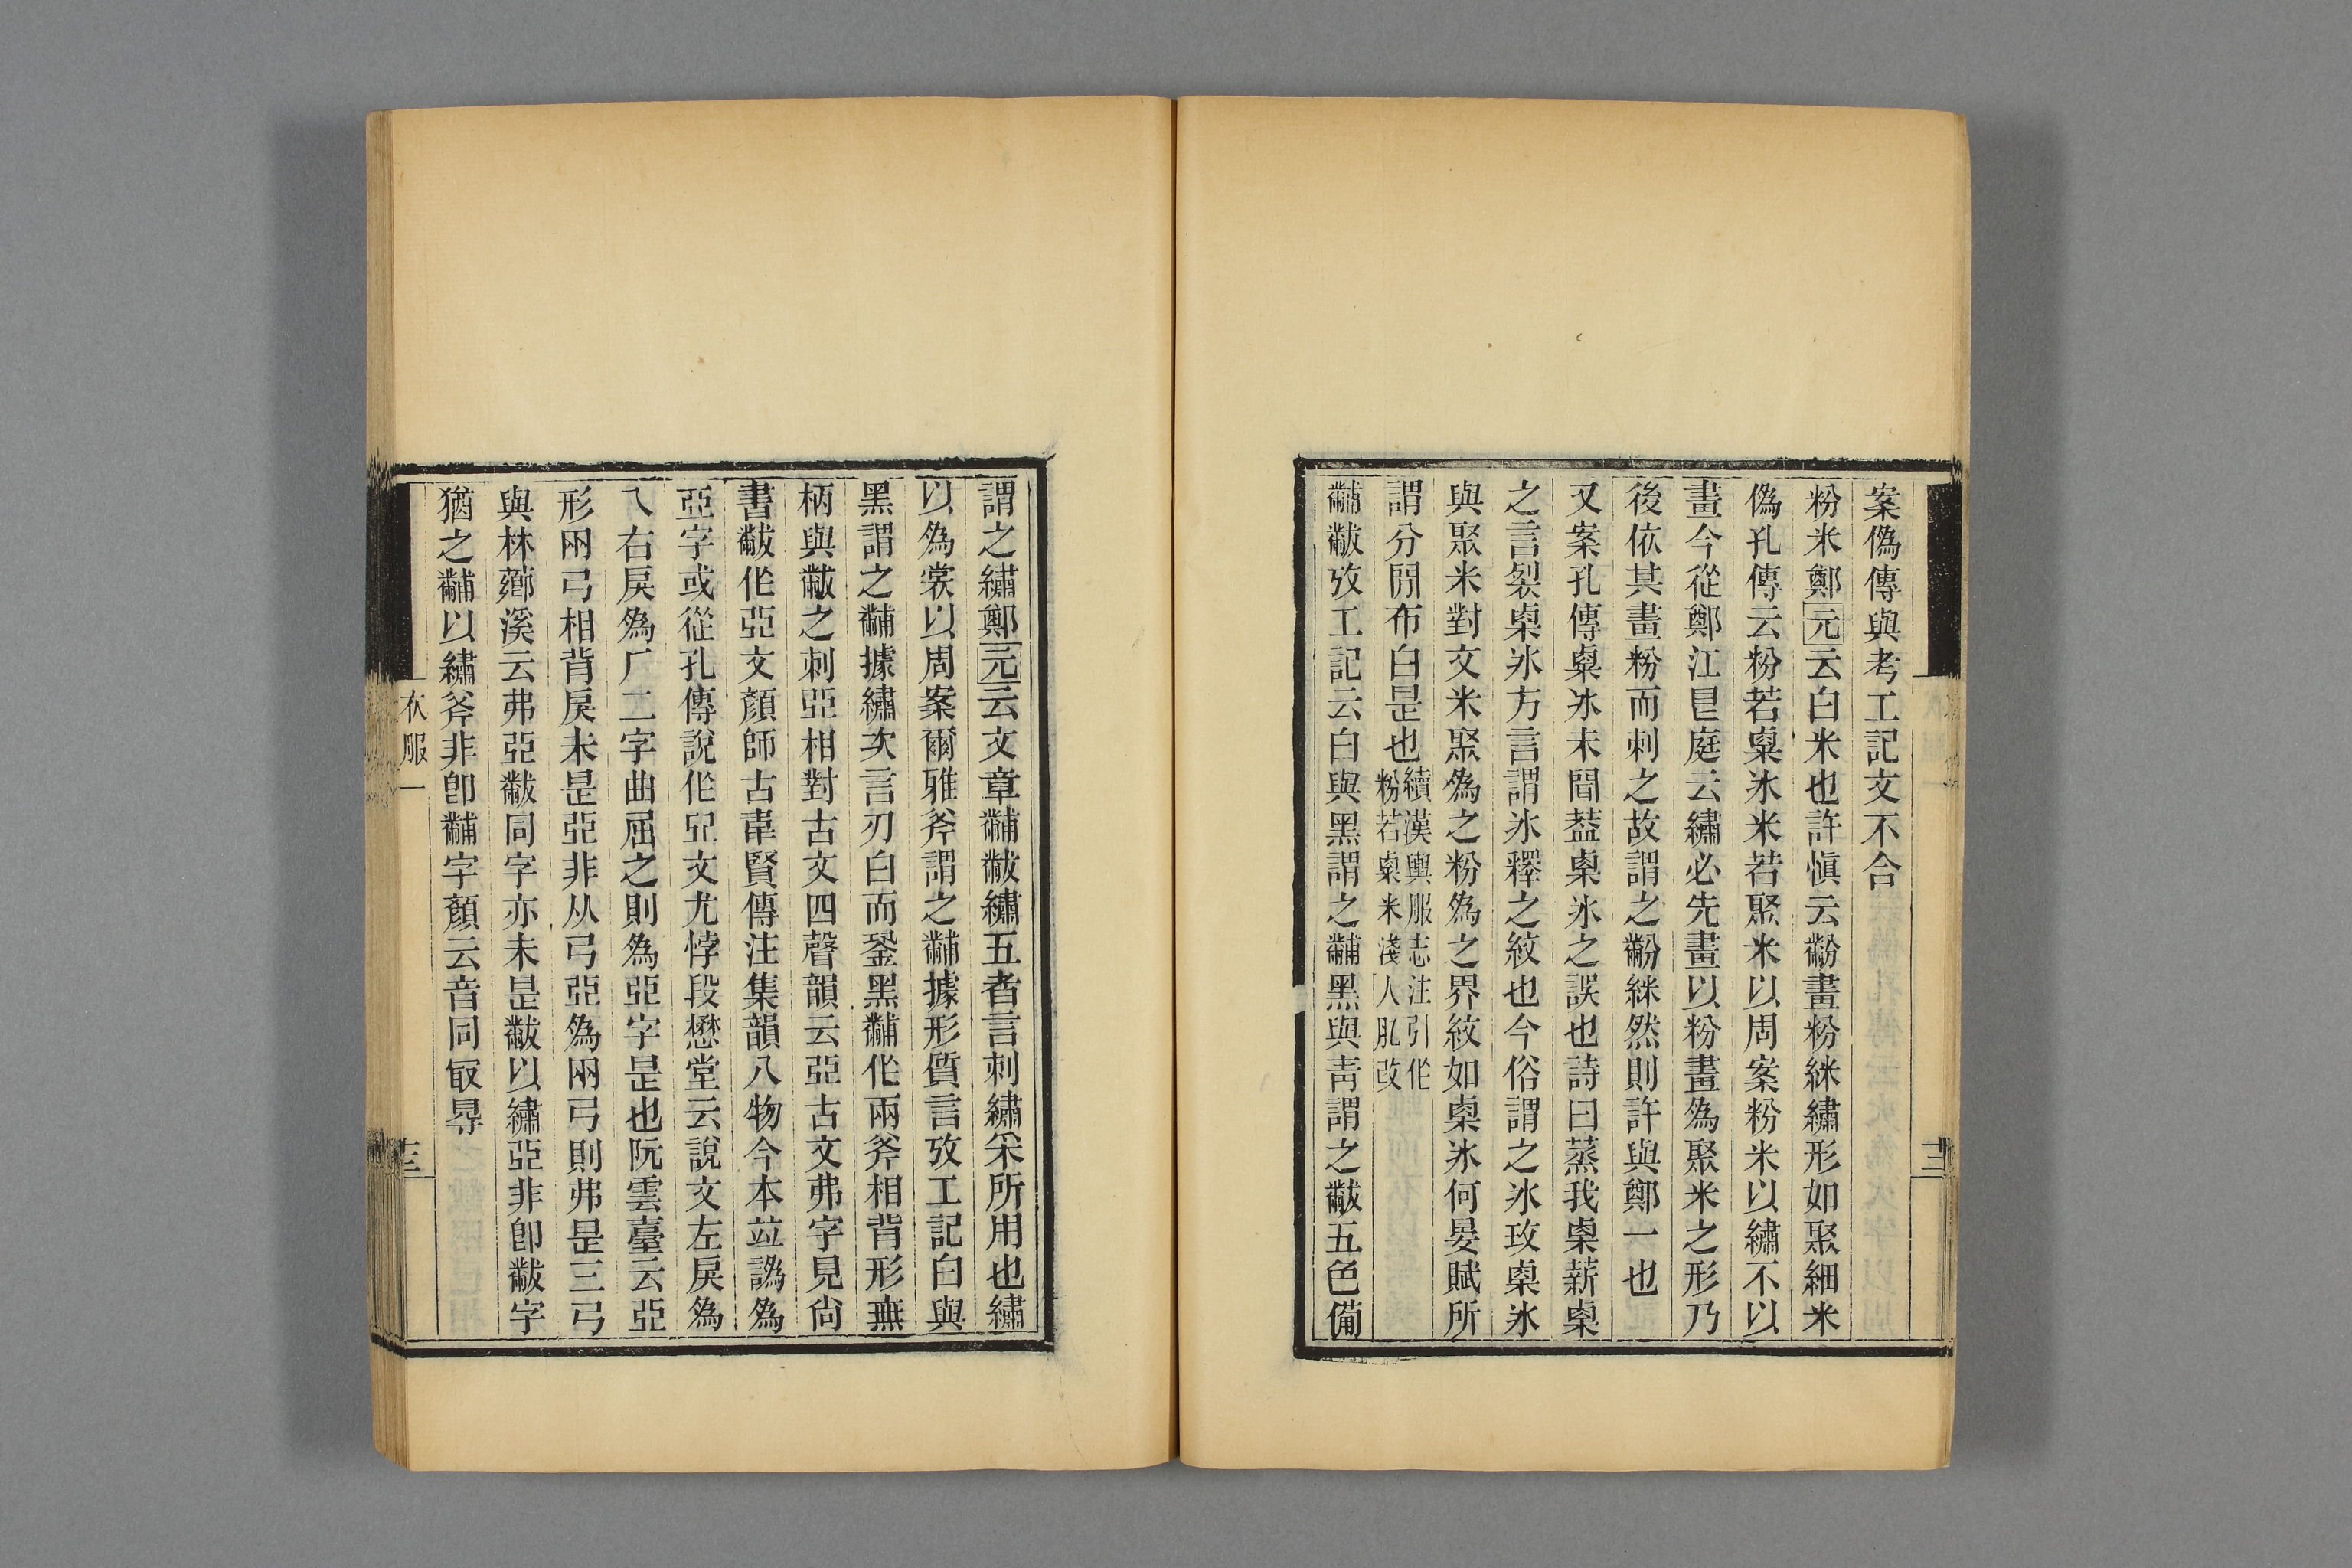 案僞傳與考工記文不合
粉米鄭元云白米也許愼云黺畫粉絲繡形如聚細米
僞孔傳云粉若粟冰米若聚米以周案粉米以繡不以
畫今從鄭江㫳庭云繡必先畫以粉畫爲聚米之形乃
後依其畫粉而刺之故謂之黺絲然則許與鄭一也
又案孔傳粟冰未聞葢㮚冰之誤也詩曰蒸我㮚薪㮚
之言裂㮚冰方言謂冰釋之紋也今俗謂之冰玫㮚冰
與聚米對文米聚爲之粉爲之界紋如㮚冰何晏賦所
謂分閒布白是也
續漢輿服志注引作
粉若㮚米淺人肊改
黼黻攷工記云白與黑謂之黼黑與靑謂之黻五色備
謂之繡鄭元云文章黼黻繡五者言刺繡采所用也繡
以爲裳以周案爾雅斧謂之黼據形質言攷工記白與
黑謂之黼據繡次言刃白而銎黑黼作兩斧相背形無
柄與黻之刺亞相對古文四聲韻云亞古文弗字見尙
書黻作亞文顏師古韋賢傳注集韻八物今本竝譌爲
亞字或從孔傳說作㔾文尤悖段懋堂云說文左戾爲
乀右戾爲𠂆二字曲屈之則爲亞字是也阮雲臺云亞
形兩弓相背戾未是亞非从弓亞爲兩弓則弗是三弓
與林薌溪云弗亞黻同字亦未是黻以繡亞非卽黻字
猶之黼以繡斧非卽黼字顏云音同㝡㝵
衣服一
十三